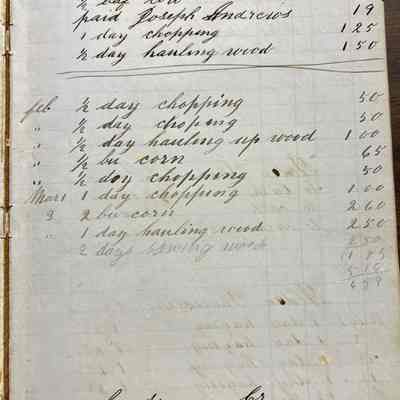 ½ day
paid Joseph Andrews 19
1 day chopping 1 25
½ day hauling wood 1 50
feb ½ day chopping 50
" ½ day choping 50
" ½ day hauling up wood 1 00
" ½ bu corn 65
" ½ day chopping 50
Mar 1 1 day chopping 1 00
3 2 bu corn 2 60
" 1 day hauling wood 2 50
2 days sawing wood